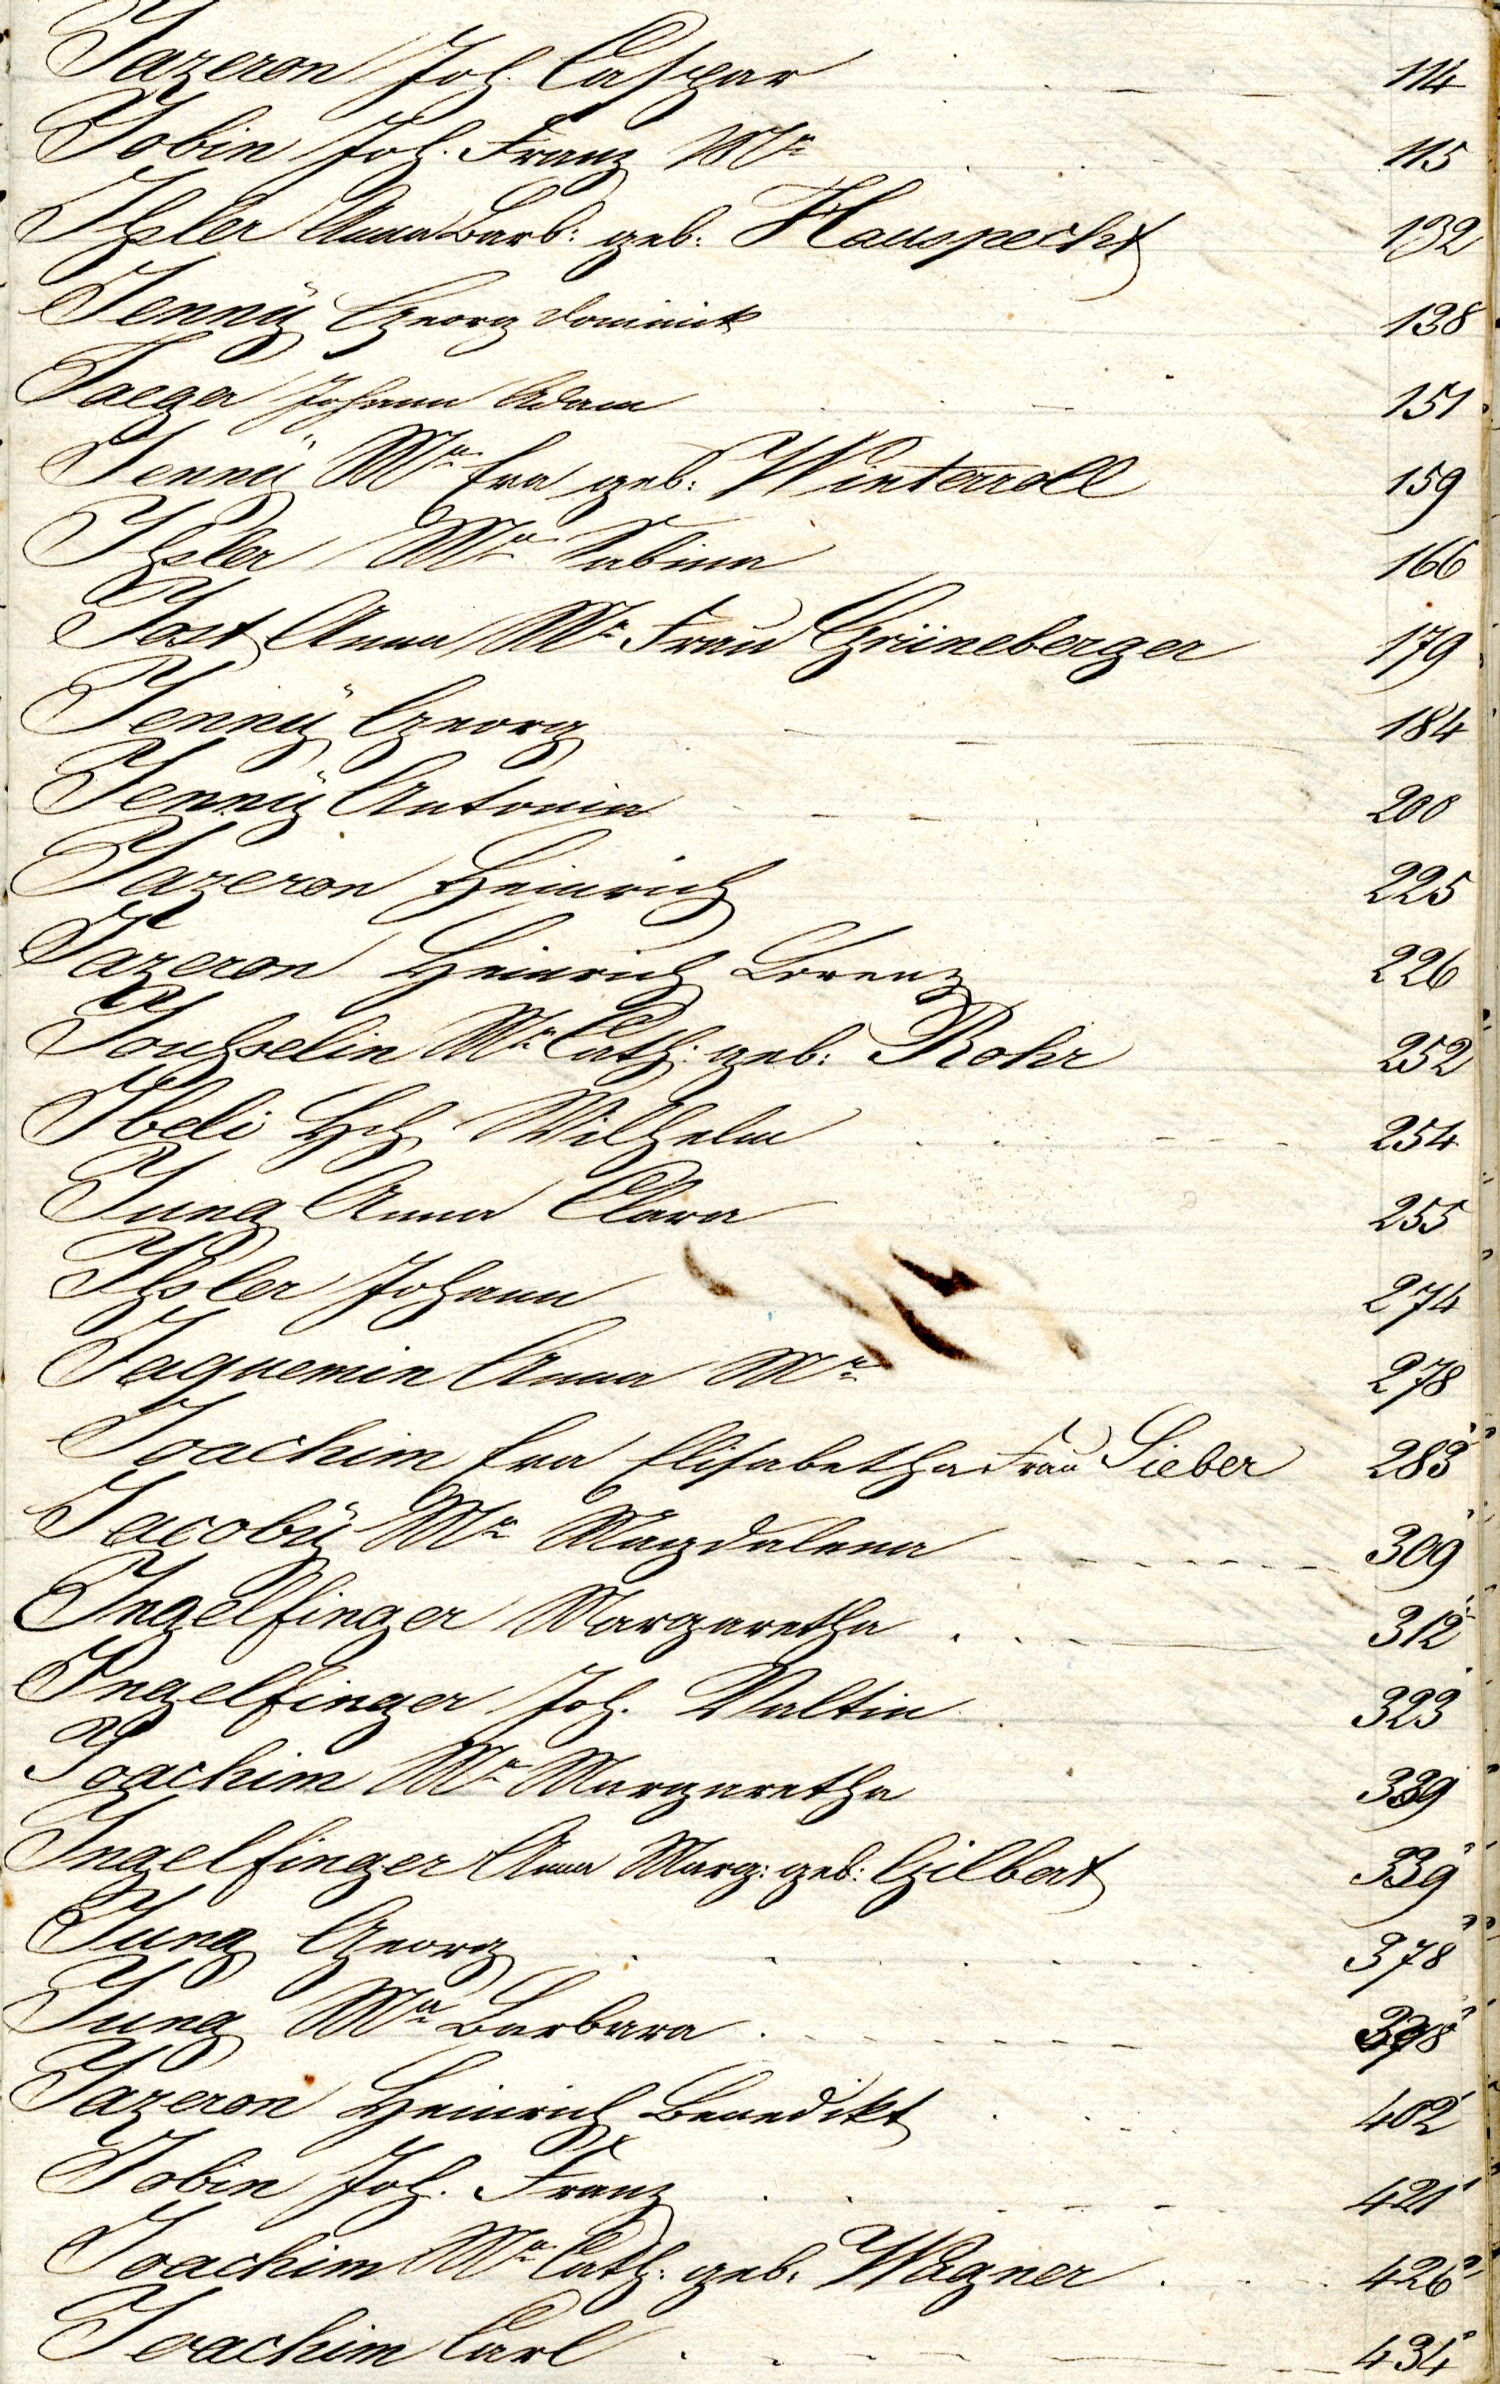 Jazeron Joh. Caspar 114
Jobin Joh. Franz Mr 115
Ihsler Anna Barb: geb: Hauspecht 132
Jennÿ Georg Dominick 138
Jaeger Johann Adam 151
Jennÿ Mr Eva geb: Winterroll 159
Ihsler Mr Sabina 166
Jost Anna Mr Frau Grüneberger 179
Jennÿ Georg 184
Jennÿ Antonia 200
Jazeron Heinrich 225
Jazeron Heinrich Lorenz 226
Jouhselin Mr Cath: geb: Rohr 252
Ibeli Hch Wilhelm 254
Jung Anna Clara 255
Ihsler Johann 274
Jaquemin Anna Mr 278
Joachim Eva Elisabetha Frau Sieber 283
Jacobÿ Mr Magdalena 309
Ingelfinger Margaretha 312
Ingelfinger Joh. Valtin 323
Joachim Mr Margaretha 339
Ingelfinger Anna Marg: geb: Gilbert 339
Jung Georg 378
Jung Mr Barbara
Jazeron Heinrich Benedikt 402
Jobin Joh. Franz 421
Joachim Mr Cath: geb: Wagner 426
Joachim Carl 434